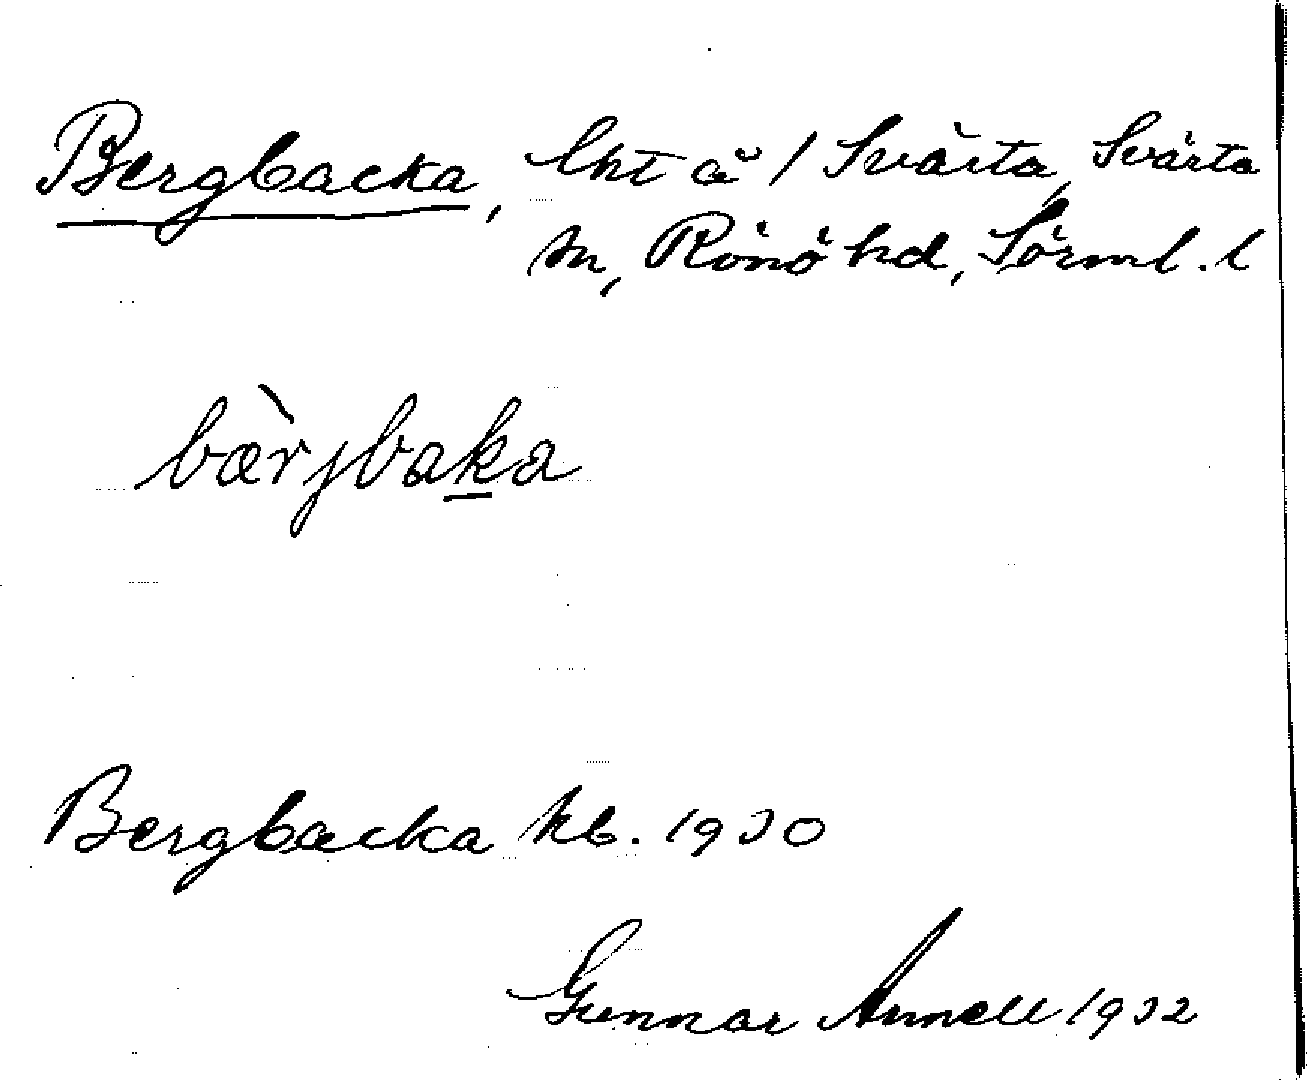 Bergbacka, lht å / Svärta, Svärta
sn, Rönö hd, Sörml. l
bæ̀rjbaḵa
Bergbacka kb. 1930
Gunnar Annell 1932